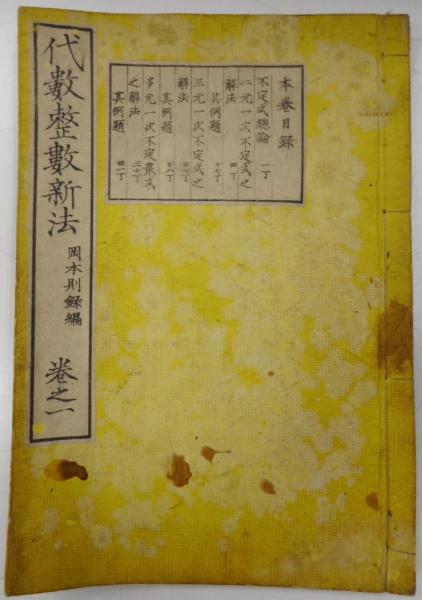 本巻目録
不定式總論 一丁
二元一次不定式之
解法 四丁
其例題 十七丁
三元一次不定式之
解法
其例題 廿八丁
多元一次不定衆式
之解法 三十丁
其例題 卅一丁
代數整數新法 岡本則録編 巻之一